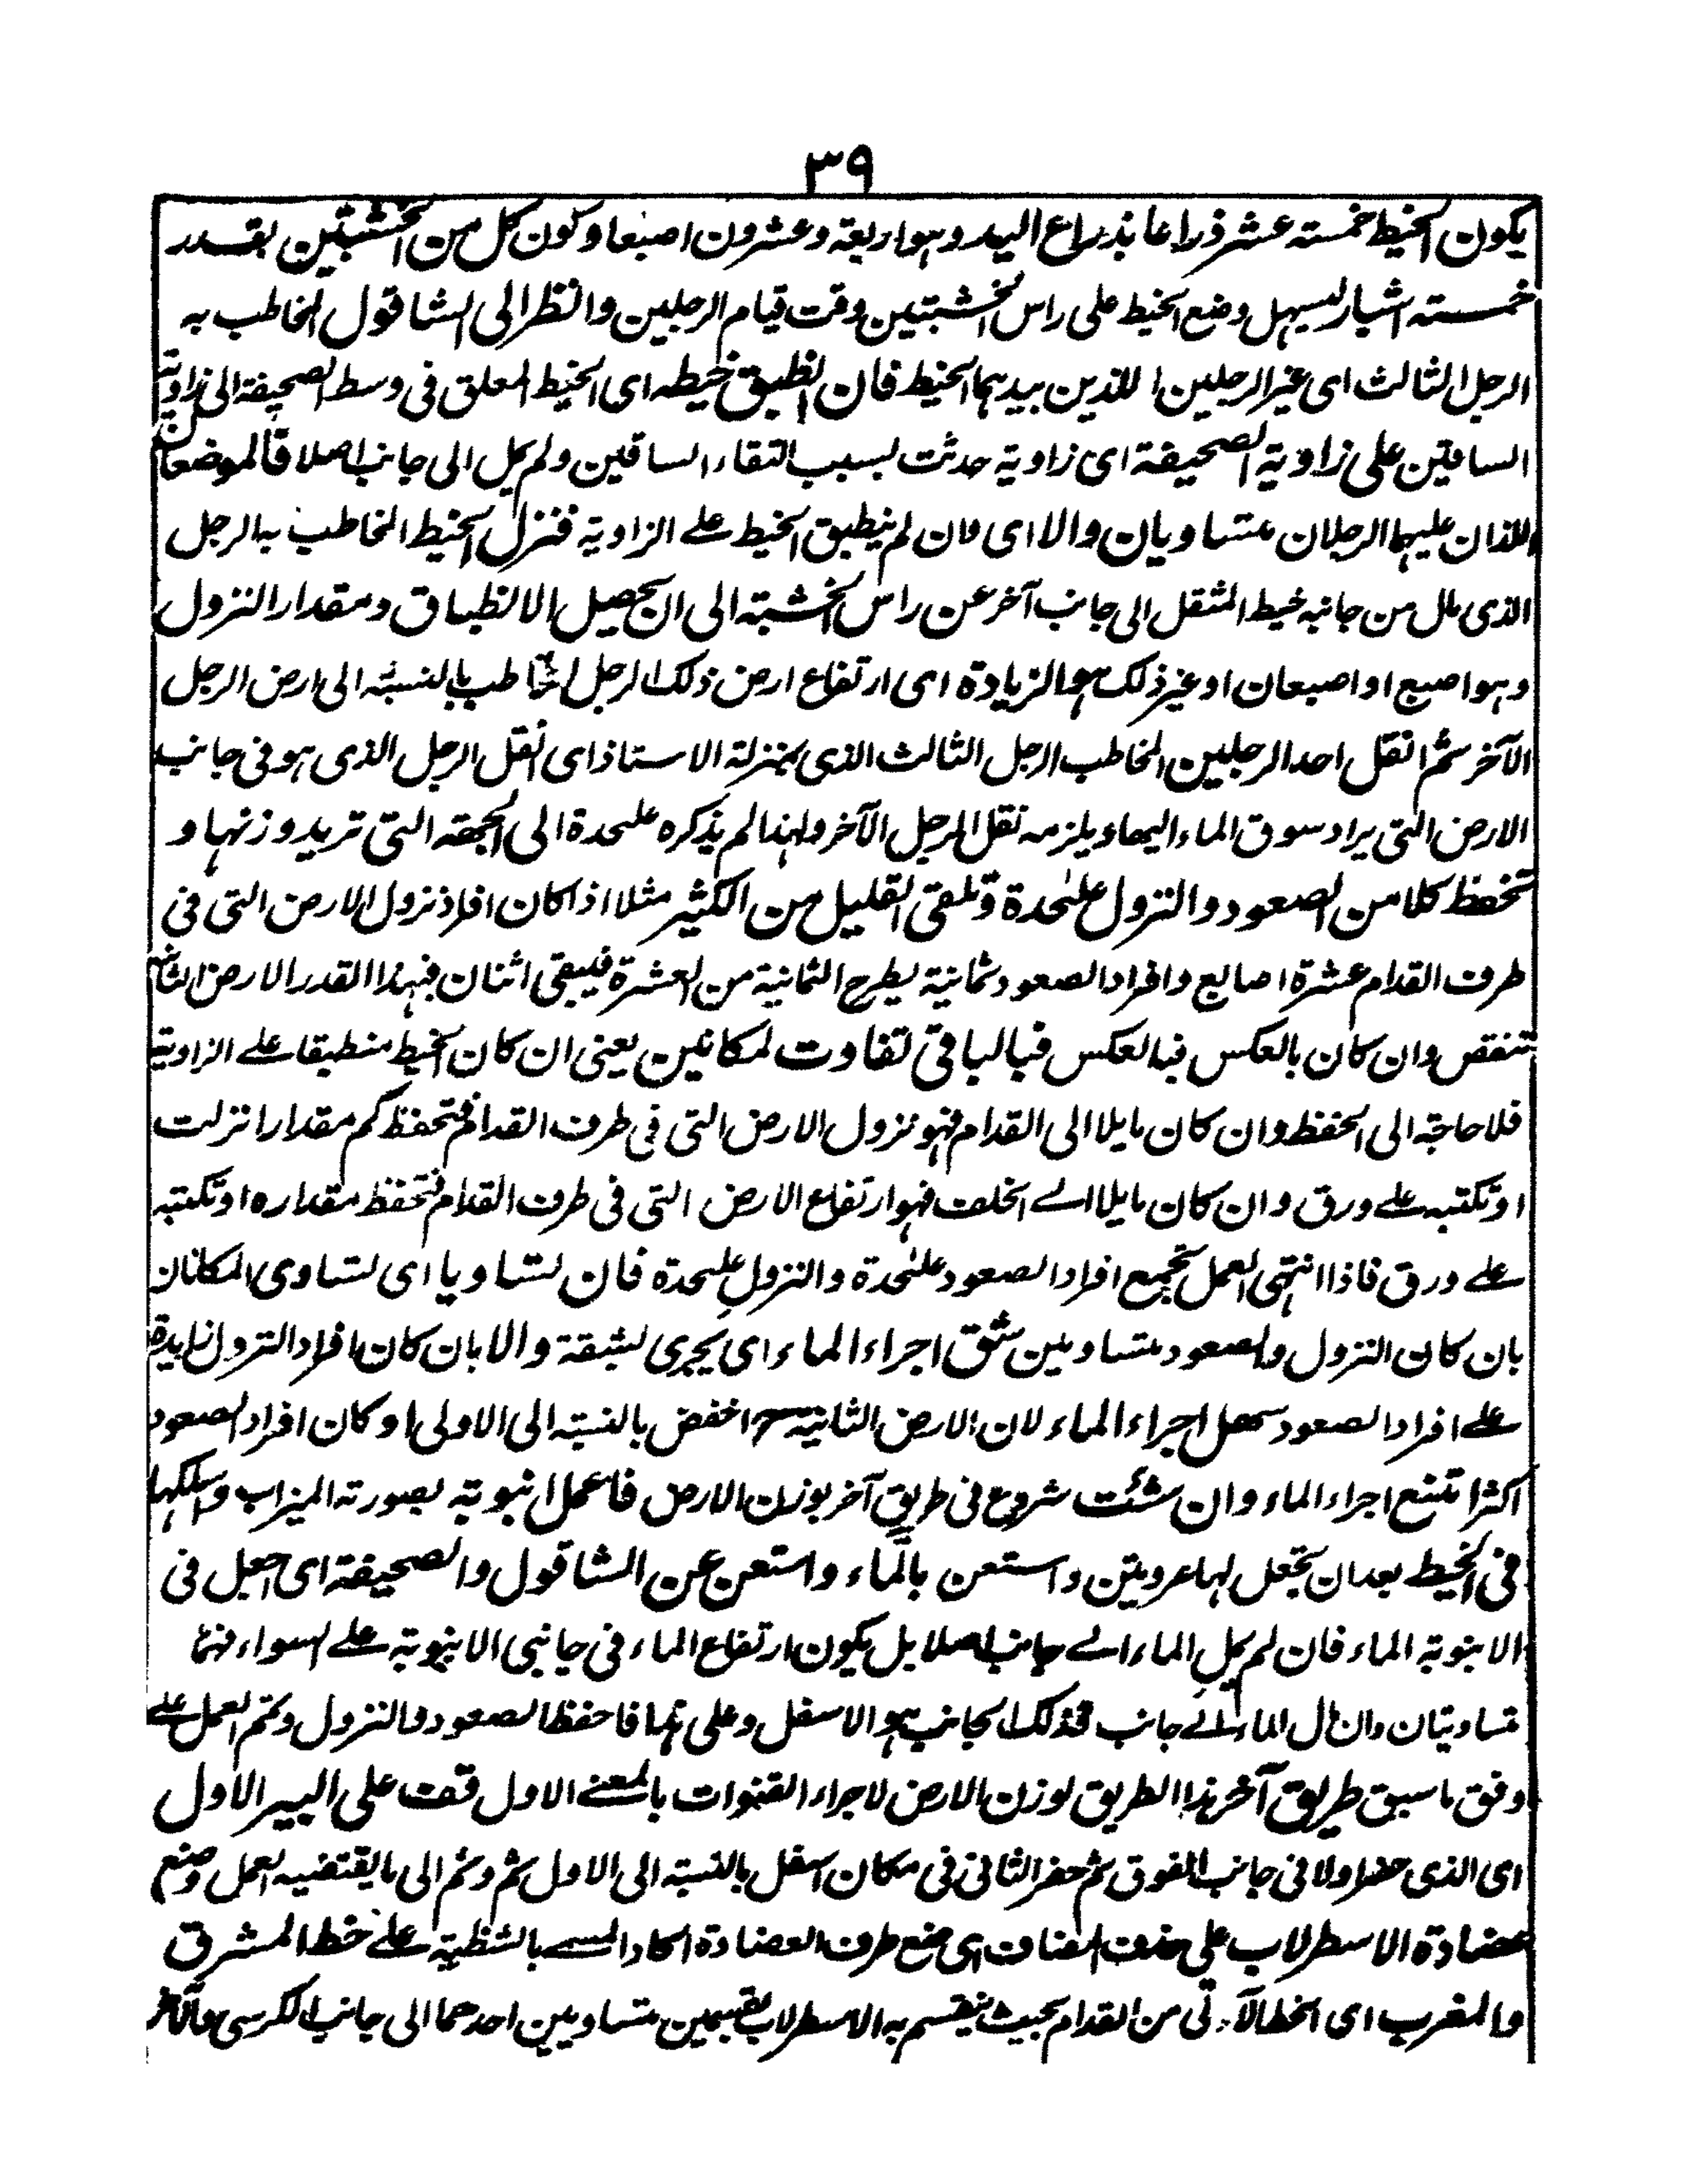 ٣٩
يكون الخيط خمسته عشر ذراعا بذراع اليد وهو اربعة وعشرون اصبعا وكون كل من الخشبتين بقدر
خمسته اشبار ليسهل وضع الخيط على راس الخشبتين وقت قيام الرجلين وانظر الى الشاقول المخاطب به
الرجل الثالث اى غير الرجلين اللذين بيدهما الخيط فان انطبق خيطه اى الخيط المعلق فى وسط الصحيفة الى زاوية
الساقين على زاوية الصحيفة اى زاوية حدثت بسبب التقاء الساقين ولم يمل الى جانب اصلا فالموضعان
اللذان عليهما الرجلان متساويان والا اى وان لم ينطبق الخيط على الزاوية فنزل الخيط المخاطب به الرجل
الذى مال من جانبه خيط المثقل الى جانب آخر عن راس الخشبة الى ان يحصل الانطباق ومقدار النزول
وهو اصبع او اصبعان او غير ذلك هو الزيادة اى ارتفاع ارض ذلك الرجل المخاطب بالنسبة الى ارض الرجل
الآخر ثم انقل احد الرجلين المخاطب الرجل الثالث الذى بمنزلة الاستاذ اى انقل الرجل الذى هو فى جانب
الارض التى يراد سوق الماء اليها ويلزمه نقل الرجل الآخر ولهذا لم يذكره عليحدة الى الجهة التى تريد وزنها و
تحفظ كلا من الصعود والنزول عليحدة وتلقى القليل من الكثير مثلا اذا كان افراد نزول الارض التى فى
طرف القدام عشرة اصابع وافراد الصعود ثمانية يطرح الثمانية من العشرة فيبقى اثنان فبهذا القدر الارض الثانية
تنقص وان كان بالعكس فبالعكس فبالباقى تفاوت لمكانين يعنى ان كان الخيط منطبقا على الزاوية
فلا حاجة الى الحفظ وان كان مايلا الى القدام فهو نزول الارض التى فى طرف القدام فتحفظ كم مقدارا نزلت
او تكتبه على ورق وان كان مايلا الى الخلف فهو ارتفاع الارض التى فى طرف القدام فتحفظ مقداره او تكتبه
على ورق فاذا انتهى العمل تجمع افراد الصعود عليحدة والنزول عليحدة فان تساويا اى تساوى المكانان
بان كان النزول والصعود متساويين شق اجراء الماء اى يجرى بشقة والا بان كان افراد النزول زايدة
على افراد الصعود سهل اجراء الماء لان الارض الثانية اخفض بالنسبة الى الاولى او كان افراد الصعود
اكثر امتنع اجراء الماء وان شئت شروع فى طريق آخر بوزن الارض فاعمل انبوبة بصورته الميزاب واسلكها
فى الخيط بعد ان تجعل لها عروتين واستعن بالماء واستعن عن الشاقول والصحيفة اى اجعل فى
الانبوبة الماء فان لم يمل الماء الى جانب اصلا بل يكون ارتفاع الماء فى جانبى الانبوبة على السواء فهما
متساويتان وان مال الماء الى جانب فذلك الجانب هو الاسفل وعلى هذا فاحفظ الصعود والنزول وتمم العمل على
وفق ما سبق طريق آخر هذا الطريق لوزن الارض لاجراء القنوات بالمعنى الاول قف على البير الاول
اى الذى حفر اولا فى جانب الفوق ثم حفر الثانى فى مكان اسفل بالنسبة الى الاول ثم وثم الى ما يقتضيه العمل وضع
عضادة الاسطرلاب على حذف المضاف اى ضع طرف العضادة الحاد المسمى بالشظية على خط المشرق
والمغرب اى الخط الآتى من القدام بحيث ينقسم به الاسطرلاب بقسمين متساويين احدهما الى جانب الكرسى والآخر